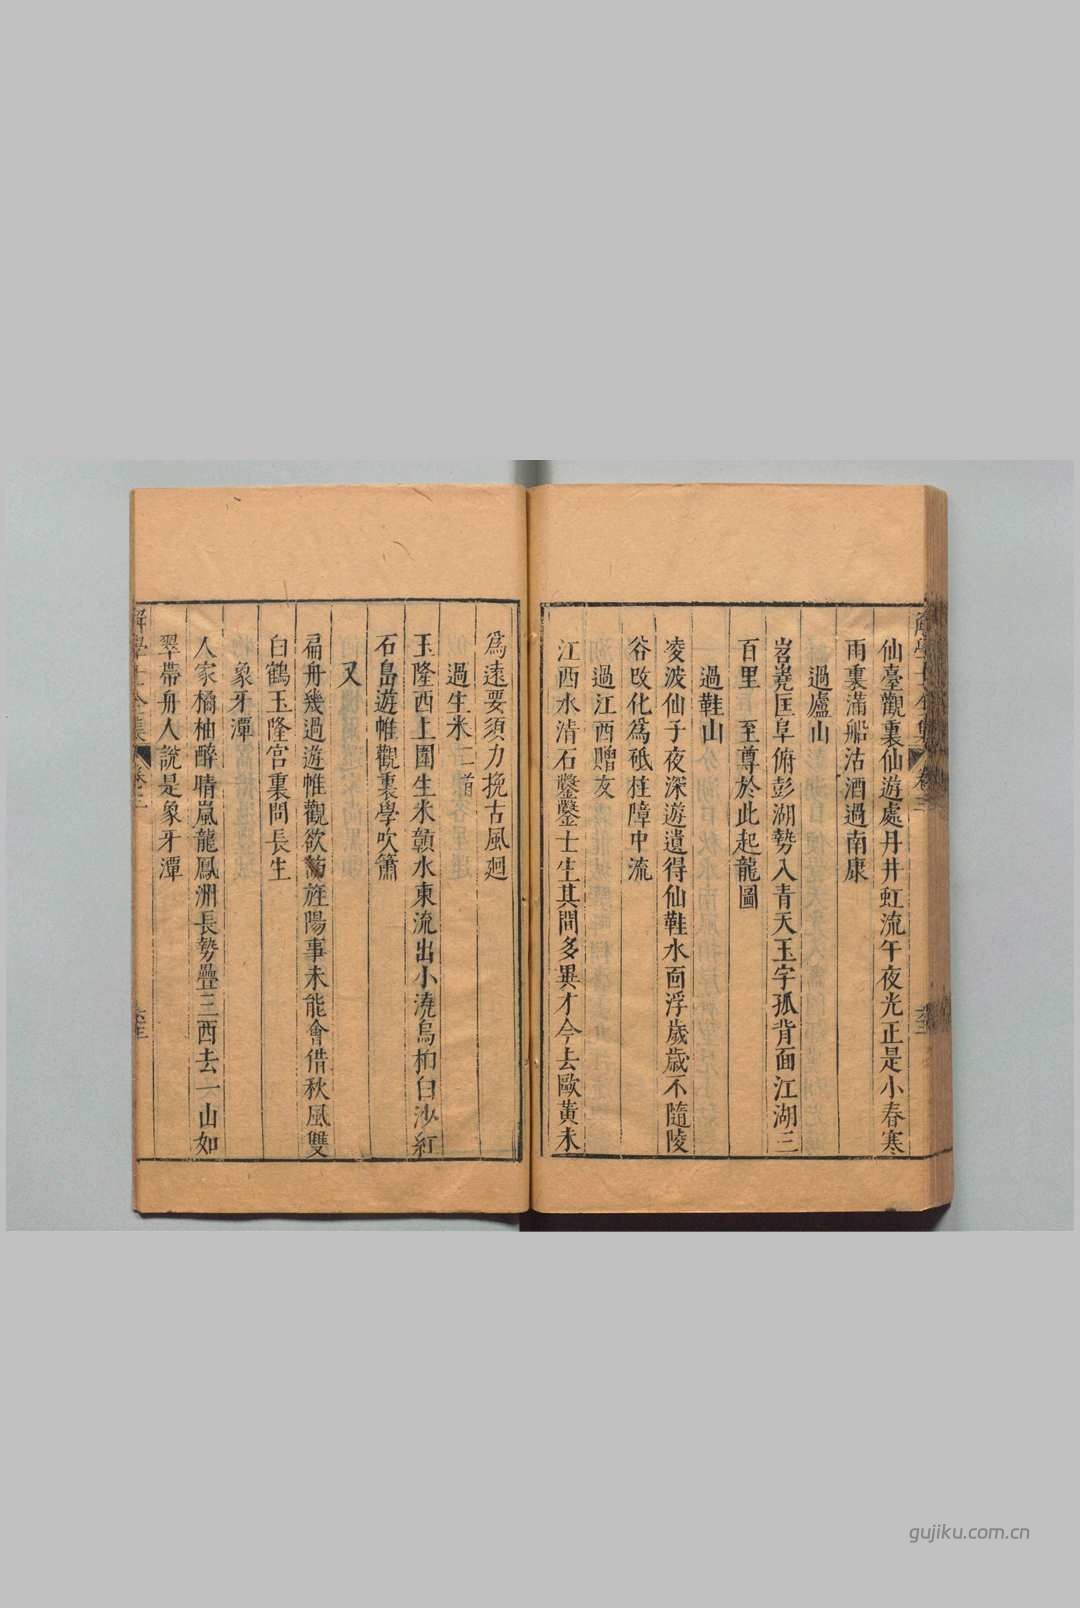 仙臺觀裏仙遊處丹井虹流午夜光正是小春寒
雨裏滿船沽酒過南康
過廬山
岧嶤匡阜俯彭湖勢入青天玉宇孤背面江湖三
百里 至尊於此起龍圖
過鞋山
凌波仙子夜深遊遺得仙鞋水面浮歲歲不隨陵
谷改化爲砥柱障中流
過江西贈友
江西水清石鑿鑿士生其間多異才今去歐黃未
爲遠要須力挽古風廻
過生米二首
玉隆西上圍生米贑水東流出小澆烏桕白沙紅
石島遊帷觀裏學吹簫
又
扁舟幾過遊帷觀欲訪旌陽事未能會借秋風雙
白鶴玉隆宮裏問長生
象牙潭
人家橘柚醉晴嵐龍鳳洲長勢疊三西去一山如
翠帶舟人說是象牙潭
學士全集 卷
gujiku.com.cn